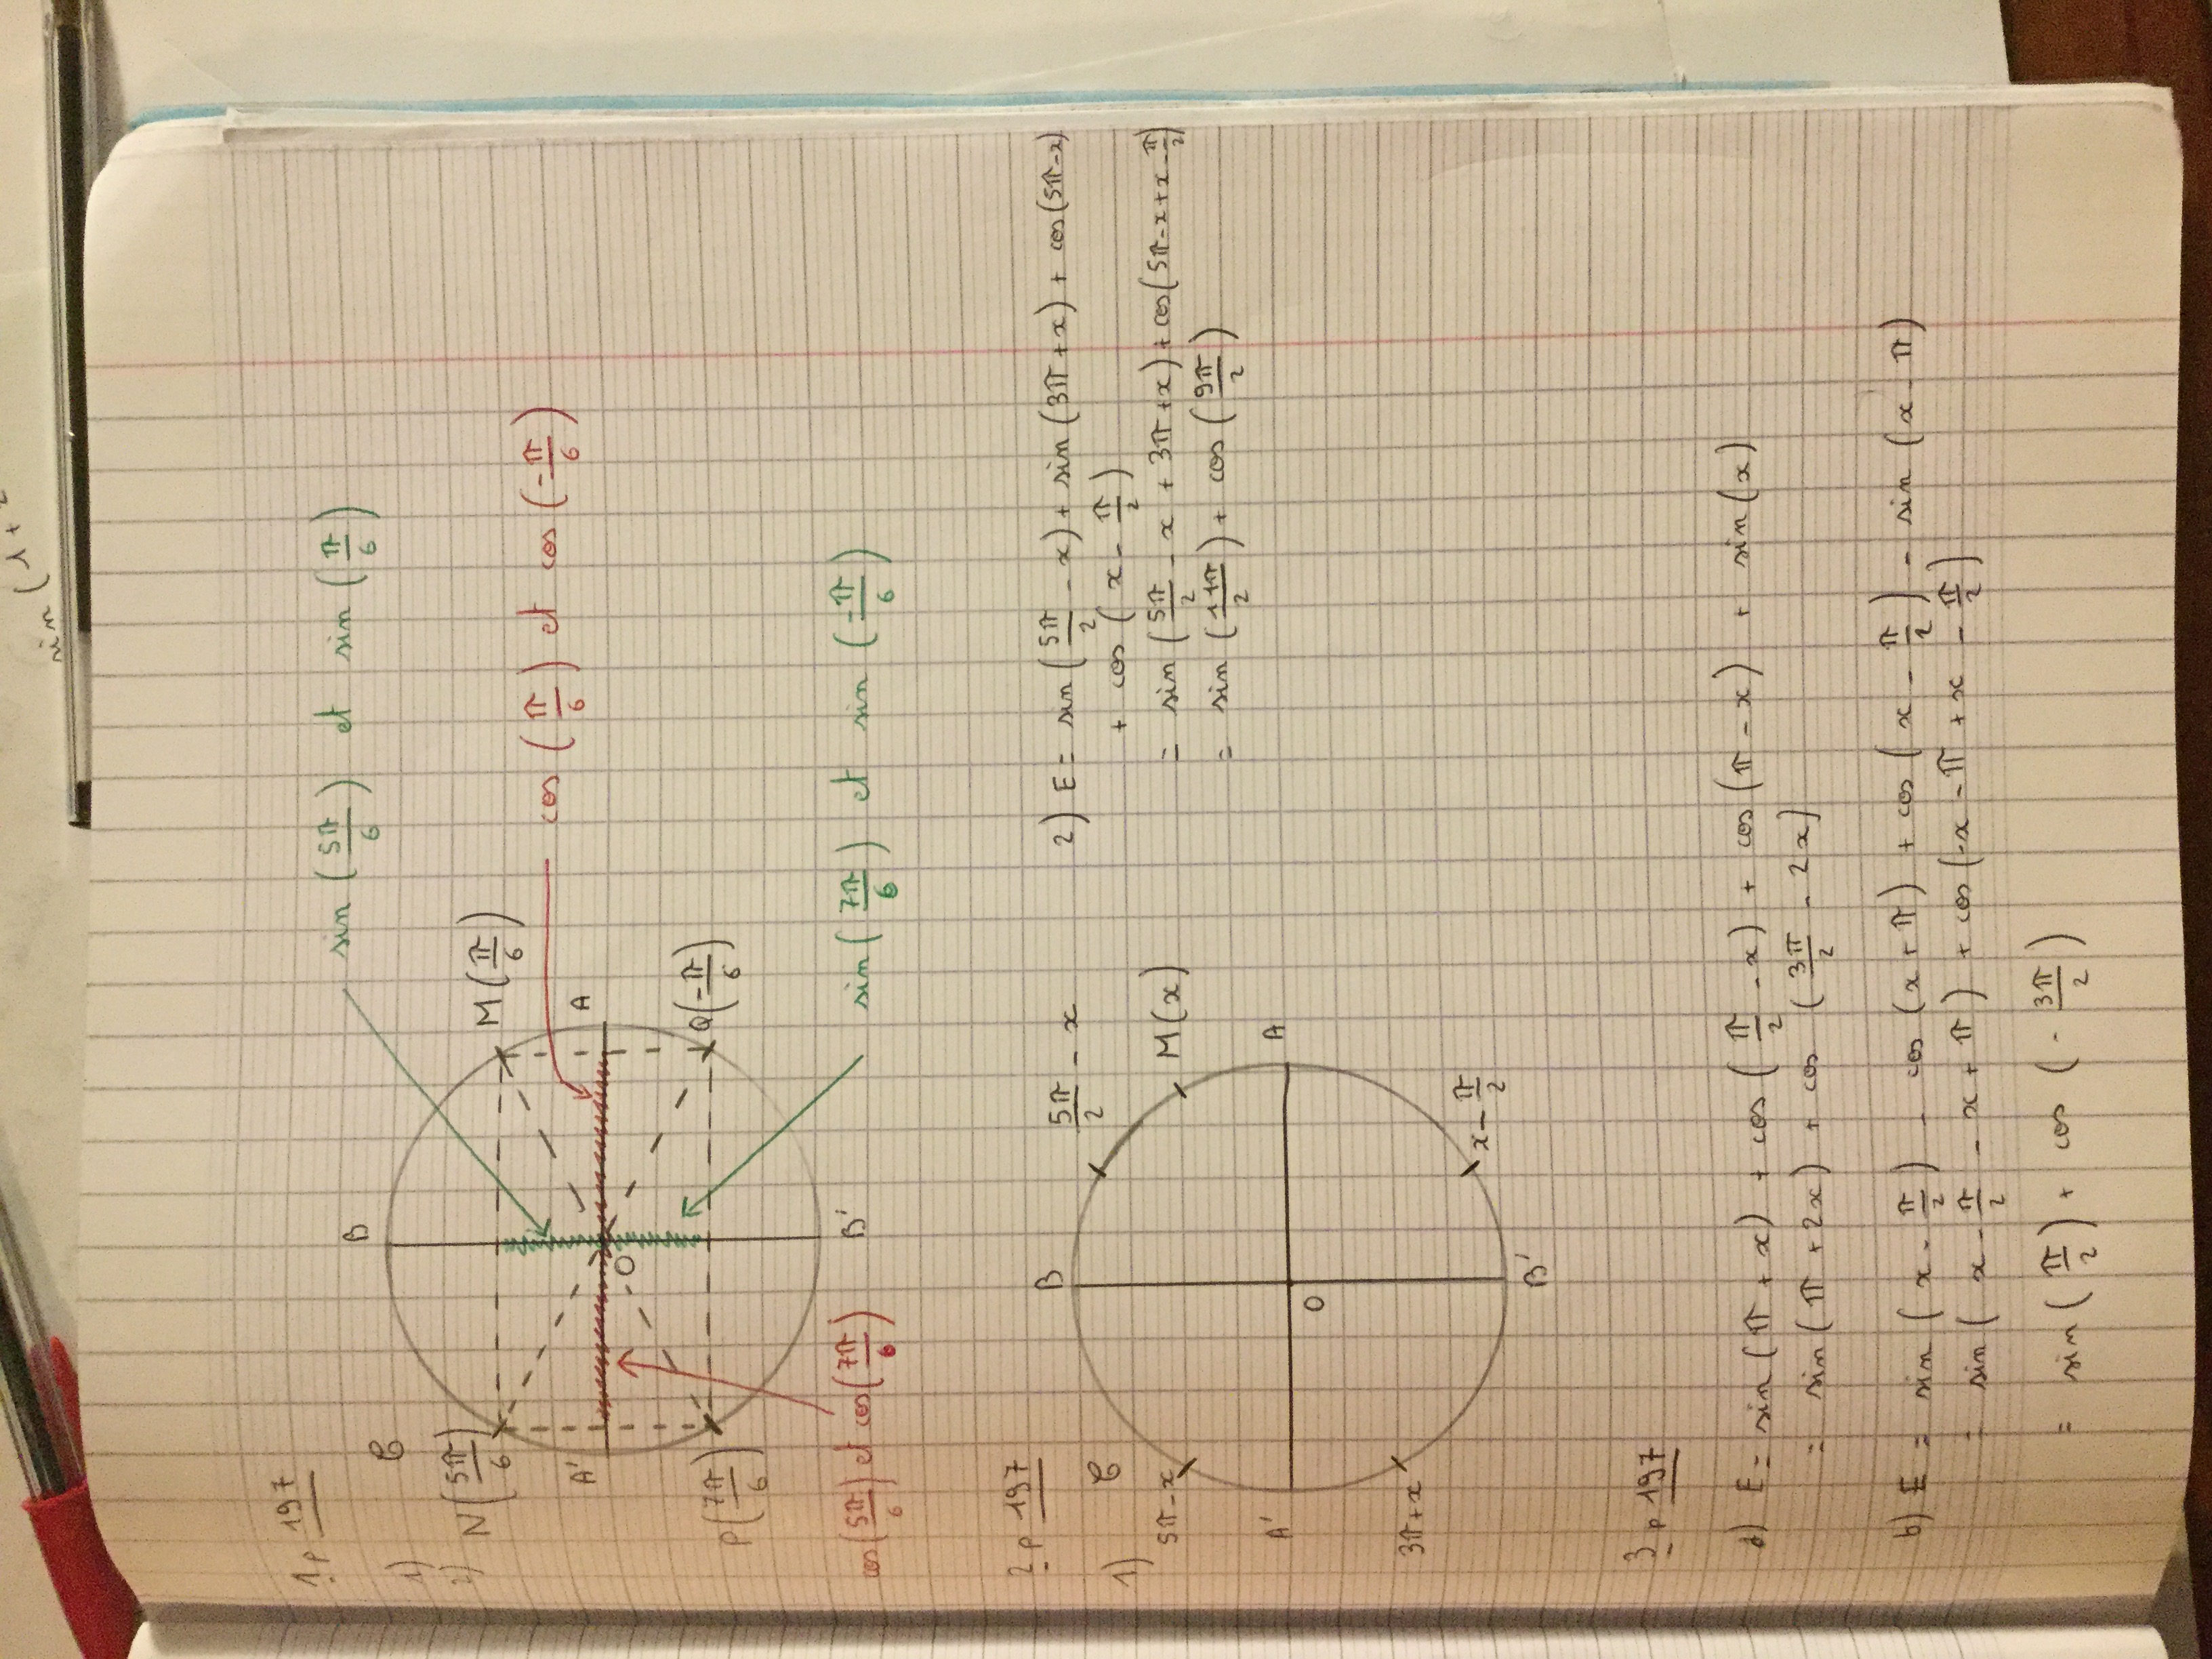 sin (1+
1 p 197
1)
2)
C
B
sin (5π/6) et sin (π/6)
N(5π/6)
M(π/6)
cos (π/6) et cos (-π/6)
A'
A
O
P(7π/6)
Q(-π/6)
B'
cos(5π/6) et cos(7π/6)
sin(7π/6) et sin (-π/6)
2 p 197
1)
C
B
5π/2 - x
M(x)
5π-x
A'
A
O
3π+x
x - π/2
B'
2) E = sin (5π/2 - x) + sin (3π + x) + cos(5π-x)
+ cos (x - π/2)
= sin (5π/2 - x + 3π + x) + cos(5π-x+x-π/2)
= sin (11π/2) + cos (9π/2)
3 p 197
a) E = sin (π + x) + cos (π/2 - x) + cos (π - x) + sin(x)
= sin (π + 2x) + cos (3π/2 - 2x)
b) E = sin (x - π/2) - cos (x + π) + cos (x - π/2) - sin (x - π)
= sin (x - π/2 - x + π) + cos (-x - π + x - π/2)
= sin (π/2) + cos (- 3π/2)